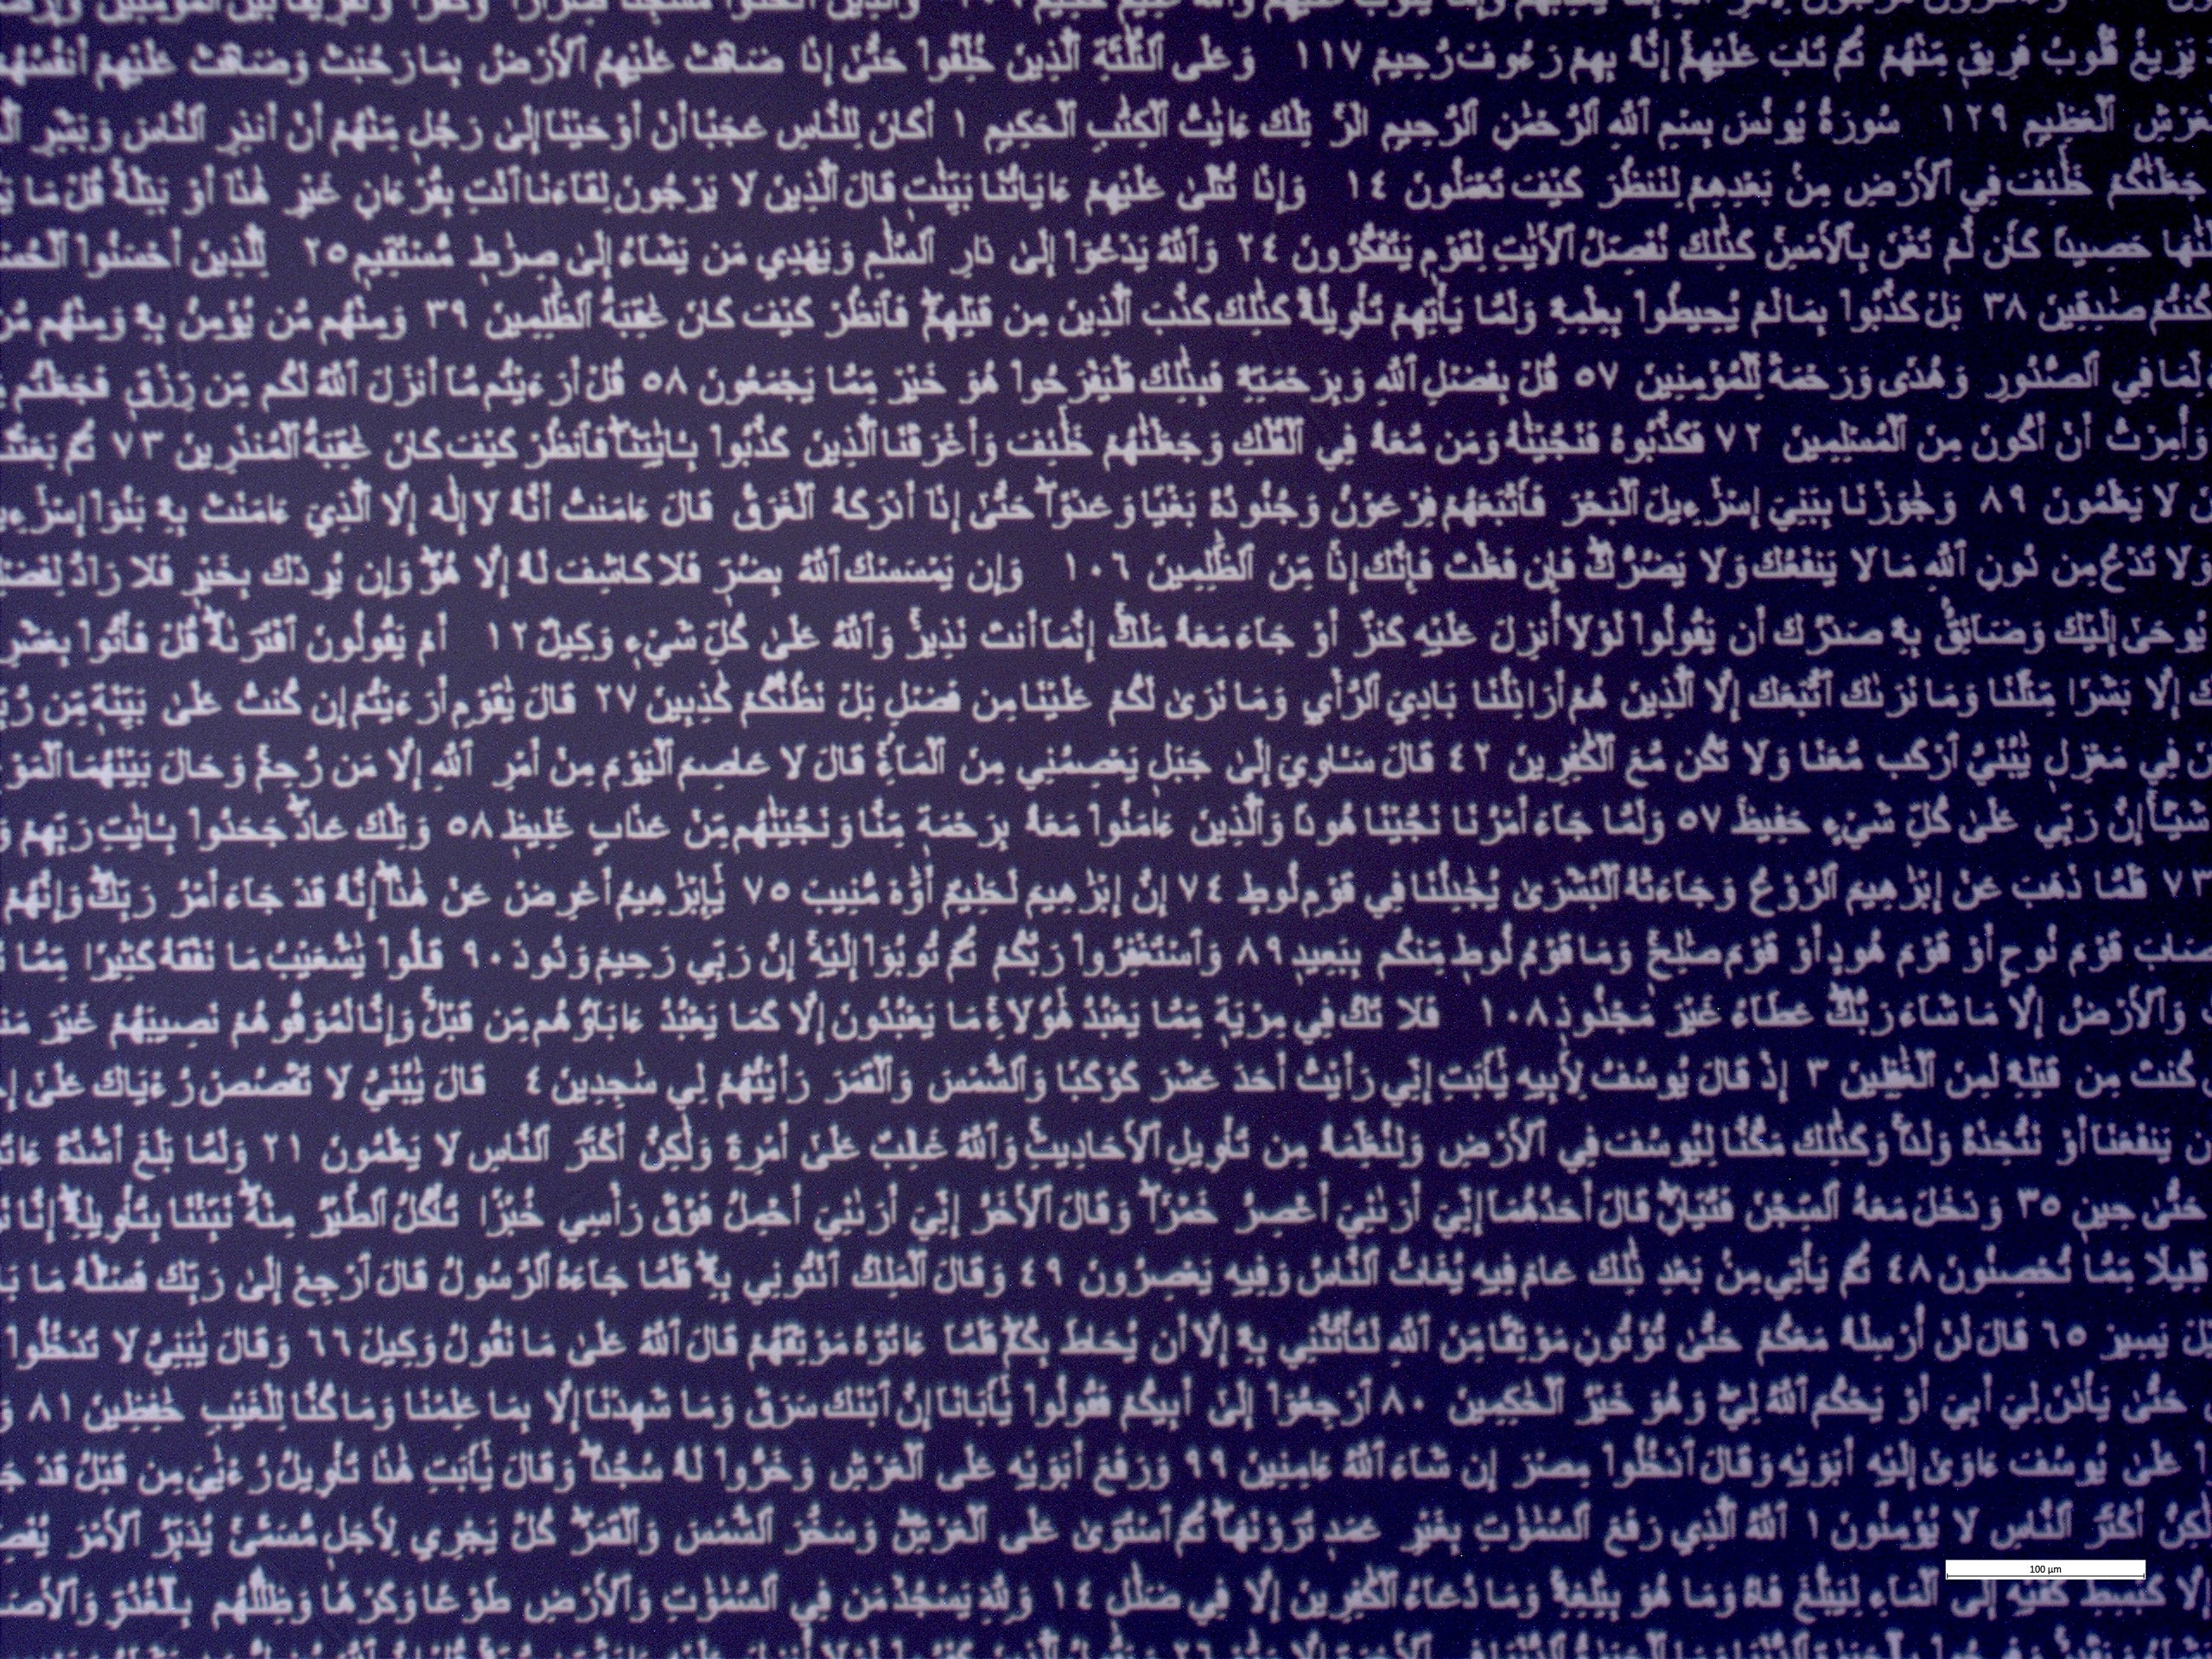 يَزِيغُ قُلُوبُ فَرِيقٍ مِّنْهُمْ ثُمَّ تَابَ عَلَيْهِمْ إِنَّهُ بِهِمْ رَءُوفٌ رَّحِيمٌ ١١٧ وَعَلَى ٱلثَّلَٰثَةِ ٱلَّذِينَ خُلِّفُوا۟ حَتَّىٰٓ إِذَا ضَاقَتْ عَلَيْهِمُ ٱلْأَرْضُ بِمَا رَحُبَتْ وَضَاقَتْ عَلَيْهِمْ أَنفُسُهُ
ٱلْعَظِيمِ ١٢٩ سُورَةُ يُونُسَ بِسْمِ ٱللَّهِ ٱلرَّحْمَٰنِ ٱلرَّحِيمِ الٓر تِلْكَ ءَايَٰتُ ٱلْكِتَٰبِ ٱلْحَكِيمِ ١ أَكَانَ لِلنَّاسِ عَجَبًا أَنْ أَوْحَيْنَآ إِلَىٰ رَجُلٍ مِّنْهُمْ أَنْ أَنذِرِ ٱلنَّاسَ وَبَشِّرِ
جَعَلْنَٰكُمْ خَلَٰٓئِفَ فِي ٱلْأَرْضِ مِنۢ بَعْدِهِمْ لِنَنظُرَ كَيْفَ تَعْمَلُونَ ١٤ وَإِذَا تُتْلَىٰ عَلَيْهِمْ ءَايَاتُنَا بَيِّنَٰتٍ قَالَ ٱلَّذِينَ لَا يَرْجُونَ لِقَآءَنَا ٱئْتِ بِقُرْءَانٍ غَيْرِ هَٰذَآ أَوْ بَدِّلْهُ قُلْ مَا
حَصِيدًا كَأَن لَّمْ تَغْنَ بِٱلْأَمْسِ كَذَٰلِكَ نُفَصِّلُ ٱلْأٓيَٰتِ لِقَوْمٍ يَتَفَكَّرُونَ ٢٤ وَٱللَّهُ يَدْعُوٓا۟ إِلَىٰ دَارِ ٱلسَّلَٰمِ وَيَهْدِي مَن يَشَآءُ إِلَىٰ صِرَٰطٍ مُّسْتَقِيمٍ ٢٥ لِّلَّذِينَ أَحْسَنُوا۟ ٱلْحُسْ
كُنتُمْ صَٰدِقِينَ ٣٨ بَلْ كَذَّبُوا۟ بِمَا لَمْ يُحِيطُوا۟ بِعِلْمِهِ وَلَمَّا يَأْتِهِمْ تَأْوِيلُهُ كَذَٰلِكَ كَذَّبَ ٱلَّذِينَ مِن قَبْلِهِمْ فَٱنظُرْ كَيْفَ كَانَ عَٰقِبَةُ ٱلظَّٰلِمِينَ ٣٩ وَمِنْهُم مَّن يُؤْمِنُ بِهِ وَمِنْهُم مَّن
لِّمَا فِي ٱلصُّدُورِ وَهُدًى وَرَحْمَةٌ لِّلْمُؤْمِنِينَ ٥٧ قُلْ بِفَضْلِ ٱللَّهِ وَبِرَحْمَتِهِ فَبِذَٰلِكَ فَلْيَفْرَحُوا۟ هُوَ خَيْرٌ مِّمَّا يَجْمَعُونَ ٥٨ قُلْ أَرَءَيْتُم مَّآ أَنزَلَ ٱللَّهُ لَكُم مِّن رِّزْقٍ فَجَعَلْتُم
وَأُمِرْتُ أَنْ أَكُونَ مِنَ ٱلْمُسْلِمِينَ ٧٢ فَكَذَّبُوهُ فَنَجَّيْنَٰهُ وَمَن مَّعَهُ فِي ٱلْفُلْكِ وَجَعَلْنَٰهُمْ خَلَٰٓئِفَ وَأَغْرَقْنَا ٱلَّذِينَ كَذَّبُوا۟ بِـَٔايَٰتِنَا فَٱنظُرْ كَيْفَ كَانَ عَٰقِبَةُ ٱلْمُنذَرِينَ ٧٣ ثُمَّ بَعَثْنَ
لَا يَعْلَمُونَ ٨٩ وَجَٰوَزْنَا بِبَنِيٓ إِسْرَٰٓءِيلَ ٱلْبَحْرَ فَأَتْبَعَهُمْ فِرْعَوْنُ وَجُنُودُهُ بَغْيًا وَعَدْوًا حَتَّىٰٓ إِذَآ أَدْرَكَهُ ٱلْغَرَقُ قَالَ ءَامَنتُ أَنَّهُ لَآ إِلَٰهَ إِلَّا ٱلَّذِيٓ ءَامَنَتْ بِهِ بَنُوٓا۟ إِسْرَٰٓءِي
وَلَا تَدْعُ مِن دُونِ ٱللَّهِ مَا لَا يَنفَعُكَ وَلَا يَضُرُّكَ فَإِن فَعَلْتَ فَإِنَّكَ إِذًا مِّنَ ٱلظَّٰلِمِينَ ١٠٦ وَإِن يَمْسَسْكَ ٱللَّهُ بِضُرٍّ فَلَا كَاشِفَ لَهُ إِلَّا هُوَ وَإِن يُرِدْكَ بِخَيْرٍ فَلَا رَآدَّ لِفَضْ
يُوحَىٰٓ إِلَيْكَ وَضَآئِقٌ بِهِ صَدْرُكَ أَن يَقُولُوا۟ لَوْلَآ أُنزِلَ عَلَيْهِ كَنزٌ أَوْ جَآءَ مَعَهُ مَلَكٌ إِنَّمَآ أَنتَ نَذِيرٌ وَٱللَّهُ عَلَىٰ كُلِّ شَيْءٍ وَكِيلٌ ١٢ أَمْ يَقُولُونَ ٱفْتَرَىٰهُ قُلْ فَأْتُوا۟ بِعَشْرِ
إِلَّا بَشَرًا مِّثْلَنَا وَمَا نَرَىٰكَ ٱتَّبَعَكَ إِلَّا ٱلَّذِينَ هُمْ أَرَاذِلُنَا بَادِيَ ٱلرَّأْيِ وَمَا نَرَىٰ لَكُمْ عَلَيْنَا مِن فَضْلٍۭ بَلْ نَظُنُّكُمْ كَٰذِبِينَ ٢٧ قَالَ يَٰقَوْمِ أَرَءَيْتُمْ إِن كُنتُ عَلَىٰ بَيِّنَةٍ مِّن رَّبِّ
فِي مَعْزِلٍ يَٰبُنَيَّ ٱرْكَب مَّعَنَا وَلَا تَكُن مَّعَ ٱلْكَٰفِرِينَ ٤٢ قَالَ سَـَٔاوِيٓ إِلَىٰ جَبَلٍ يَعْصِمُنِي مِنَ ٱلْمَآءِ قَالَ لَا عَاصِمَ ٱلْيَوْمَ مِنْ أَمْرِ ٱللَّهِ إِلَّا مَن رَّحِمَ وَحَالَ بَيْنَهُمَا ٱلْمَوْ
شَيْـًٔا إِنَّ رَبِّي عَلَىٰ كُلِّ شَيْءٍ حَفِيظٌ ٥٧ وَلَمَّا جَآءَ أَمْرُنَا نَجَّيْنَا هُودًا وَٱلَّذِينَ ءَامَنُوا۟ مَعَهُ بِرَحْمَةٍ مِّنَّا وَنَجَّيْنَٰهُم مِّنْ عَذَابٍ غَلِيظٍ ٥٨ وَتِلْكَ عَادٌ جَحَدُوا۟ بِـَٔايَٰتِ رَبِّهِمْ
٧٣ فَلَمَّا ذَهَبَ عَنْ إِبْرَٰهِيمَ ٱلرَّوْعُ وَجَآءَتْهُ ٱلْبُشْرَىٰ يُجَٰدِلُنَا فِي قَوْمِ لُوطٍ ٧٤ إِنَّ إِبْرَٰهِيمَ لَحَلِيمٌ أَوَّٰهٌ مُّنِيبٌ ٧٥ يَٰٓإِبْرَٰهِيمُ أَعْرِضْ عَنْ هَٰذَآ إِنَّهُ قَدْ جَآءَ أَمْرُ رَبِّكَ وَإِنَّهُمْ
قَوْمَ نُوحٍ أَوْ قَوْمَ هُودٍ أَوْ قَوْمَ صَٰلِحٍ وَمَا قَوْمُ لُوطٍ مِّنكُم بِبَعِيدٍ ٨٩ وَٱسْتَغْفِرُوا۟ رَبَّكُمْ ثُمَّ تُوبُوٓا۟ إِلَيْهِ إِنَّ رَبِّي رَحِيمٌ وَدُودٌ ٩٠ قَالُوا۟ يَٰشُعَيْبُ مَا نَفْقَهُ كَثِيرًا مِّمَّا
وَٱلْأَرْضُ إِلَّا مَا شَآءَ رَبُّكَ عَطَآءً غَيْرَ مَجْذُوذٍ ١٠٨ فَلَا تَكُ فِي مِرْيَةٍ مِّمَّا يَعْبُدُ هَٰٓؤُلَآءِ مَا يَعْبُدُونَ إِلَّا كَمَا يَعْبُدُ ءَابَآؤُهُم مِّن قَبْلُ وَإِنَّا لَمُوَفُّوهُمْ نَصِيبَهُمْ غَيْرَ مَن
كُنتَ مِن قَبْلِهِ لَمِنَ ٱلْغَٰفِلِينَ ٣ إِذْ قَالَ يُوسُفُ لِأَبِيهِ يَٰٓأَبَتِ إِنِّي رَأَيْتُ أَحَدَ عَشَرَ كَوْكَبًا وَٱلشَّمْسَ وَٱلْقَمَرَ رَأَيْتُهُمْ لِي سَٰجِدِينَ ٤ قَالَ يَٰبُنَيَّ لَا تَقْصُصْ رُءْيَاكَ عَلَىٰٓ
يَنفَعَنَآ أَوْ نَتَّخِذَهُ وَلَدًا وَكَذَٰلِكَ مَكَّنَّا لِيُوسُفَ فِي ٱلْأَرْضِ وَلِنُعَلِّمَهُ مِن تَأْوِيلِ ٱلْأَحَادِيثِ وَٱللَّهُ غَالِبٌ عَلَىٰٓ أَمْرِهِ وَلَٰكِنَّ أَكْثَرَ ٱلنَّاسِ لَا يَعْلَمُونَ ٢١ وَلَمَّا بَلَغَ أَشُدَّهُ
حَتَّىٰ حِينٍ ٣٥ وَدَخَلَ مَعَهُ ٱلسِّجْنَ فَتَيَانِ قَالَ أَحَدُهُمَآ إِنِّيٓ أَرَىٰنِيٓ أَعْصِرُ خَمْرًا وَقَالَ ٱلْأٓخَرُ إِنِّيٓ أَرَىٰنِيٓ أَحْمِلُ فَوْقَ رَأْسِي خُبْزًا تَأْكُلُ ٱلطَّيْرُ مِنْهُ نَبِّئْنَا بِتَأْوِيلِهِ إِنَّا
قَلِيلًا مِّمَّا تُحْصِنُونَ ٤٨ ثُمَّ يَأْتِي مِنۢ بَعْدِ ذَٰلِكَ عَامٌ فِيهِ يُغَاثُ ٱلنَّاسُ وَفِيهِ يَعْصِرُونَ ٤٩ وَقَالَ ٱلْمَلِكُ ٱئْتُونِي بِهِ فَلَمَّا جَآءَهُ ٱلرَّسُولُ قَالَ ٱرْجِعْ إِلَىٰ رَبِّكَ فَسْـَٔلْهُ مَا
يَسِيرٌ ٦٥ قَالَ لَنْ أُرْسِلَهُ مَعَكُمْ حَتَّىٰ تُؤْتُونِ مَوْثِقًا مِّنَ ٱللَّهِ لَتَأْتُنَّنِي بِهِ إِلَّآ أَن يُحَاطَ بِكُمْ فَلَمَّآ ءَاتَوْهُ مَوْثِقَهُمْ قَالَ ٱللَّهُ عَلَىٰ مَا نَقُولُ وَكِيلٌ ٦٦ وَقَالَ يَٰبَنِيَّ لَا تَدْخُلُوا۟
حَتَّىٰ يَأْذَنَ لِيٓ أَبِيٓ أَوْ يَحْكُمَ ٱللَّهُ لِي وَهُوَ خَيْرُ ٱلْحَٰكِمِينَ ٨٠ ٱرْجِعُوٓا۟ إِلَىٰٓ أَبِيكُمْ فَقُولُوا۟ يَٰٓأَبَانَآ إِنَّ ٱبْنَكَ سَرَقَ وَمَا شَهِدْنَآ إِلَّا بِمَا عَلِمْنَا وَمَا كُنَّا لِلْغَيْبِ حَٰفِظِينَ ٨١
عَلَىٰ يُوسُفَ ءَاوَىٰٓ إِلَيْهِ أَبَوَيْهِ وَقَالَ ٱدْخُلُوا۟ مِصْرَ إِن شَآءَ ٱللَّهُ ءَامِنِينَ ٩٩ وَرَفَعَ أَبَوَيْهِ عَلَى ٱلْعَرْشِ وَخَرُّوا۟ لَهُ سُجَّدًا وَقَالَ يَٰٓأَبَتِ هَٰذَا تَأْوِيلُ رُءْيَٰيَ مِن قَبْلُ قَدْ
أَكْثَرَ ٱلنَّاسِ لَا يُؤْمِنُونَ ١ ٱللَّهُ ٱلَّذِي رَفَعَ ٱلسَّمَٰوَٰتِ بِغَيْرِ عَمَدٍ تَرَوْنَهَا ثُمَّ ٱسْتَوَىٰ عَلَى ٱلْعَرْشِ وَسَخَّرَ ٱلشَّمْسَ وَٱلْقَمَرَ كُلٌّ يَجْرِي لِأَجَلٍ مُّسَمًّى يُدَبِّرُ ٱلْأَمْرَ يُفَصِّ
100 µm
إِلَّا كَبَٰسِطِ كَفَّيْهِ إِلَى ٱلْمَآءِ لِيَبْلُغَ فَاهُ وَمَا هُوَ بِبَٰلِغِهِ وَمَا دُعَآءُ ٱلْكَٰفِرِينَ إِلَّا فِي ضَلَٰلٍ ١٤ وَلِلَّهِ يَسْجُدُ مَن فِي ٱلسَّمَٰوَٰتِ وَٱلْأَرْضِ طَوْعًا وَكَرْهًا وَظِلَٰلُهُم بِٱلْغُدُوِّ وَٱلْأٓصَ